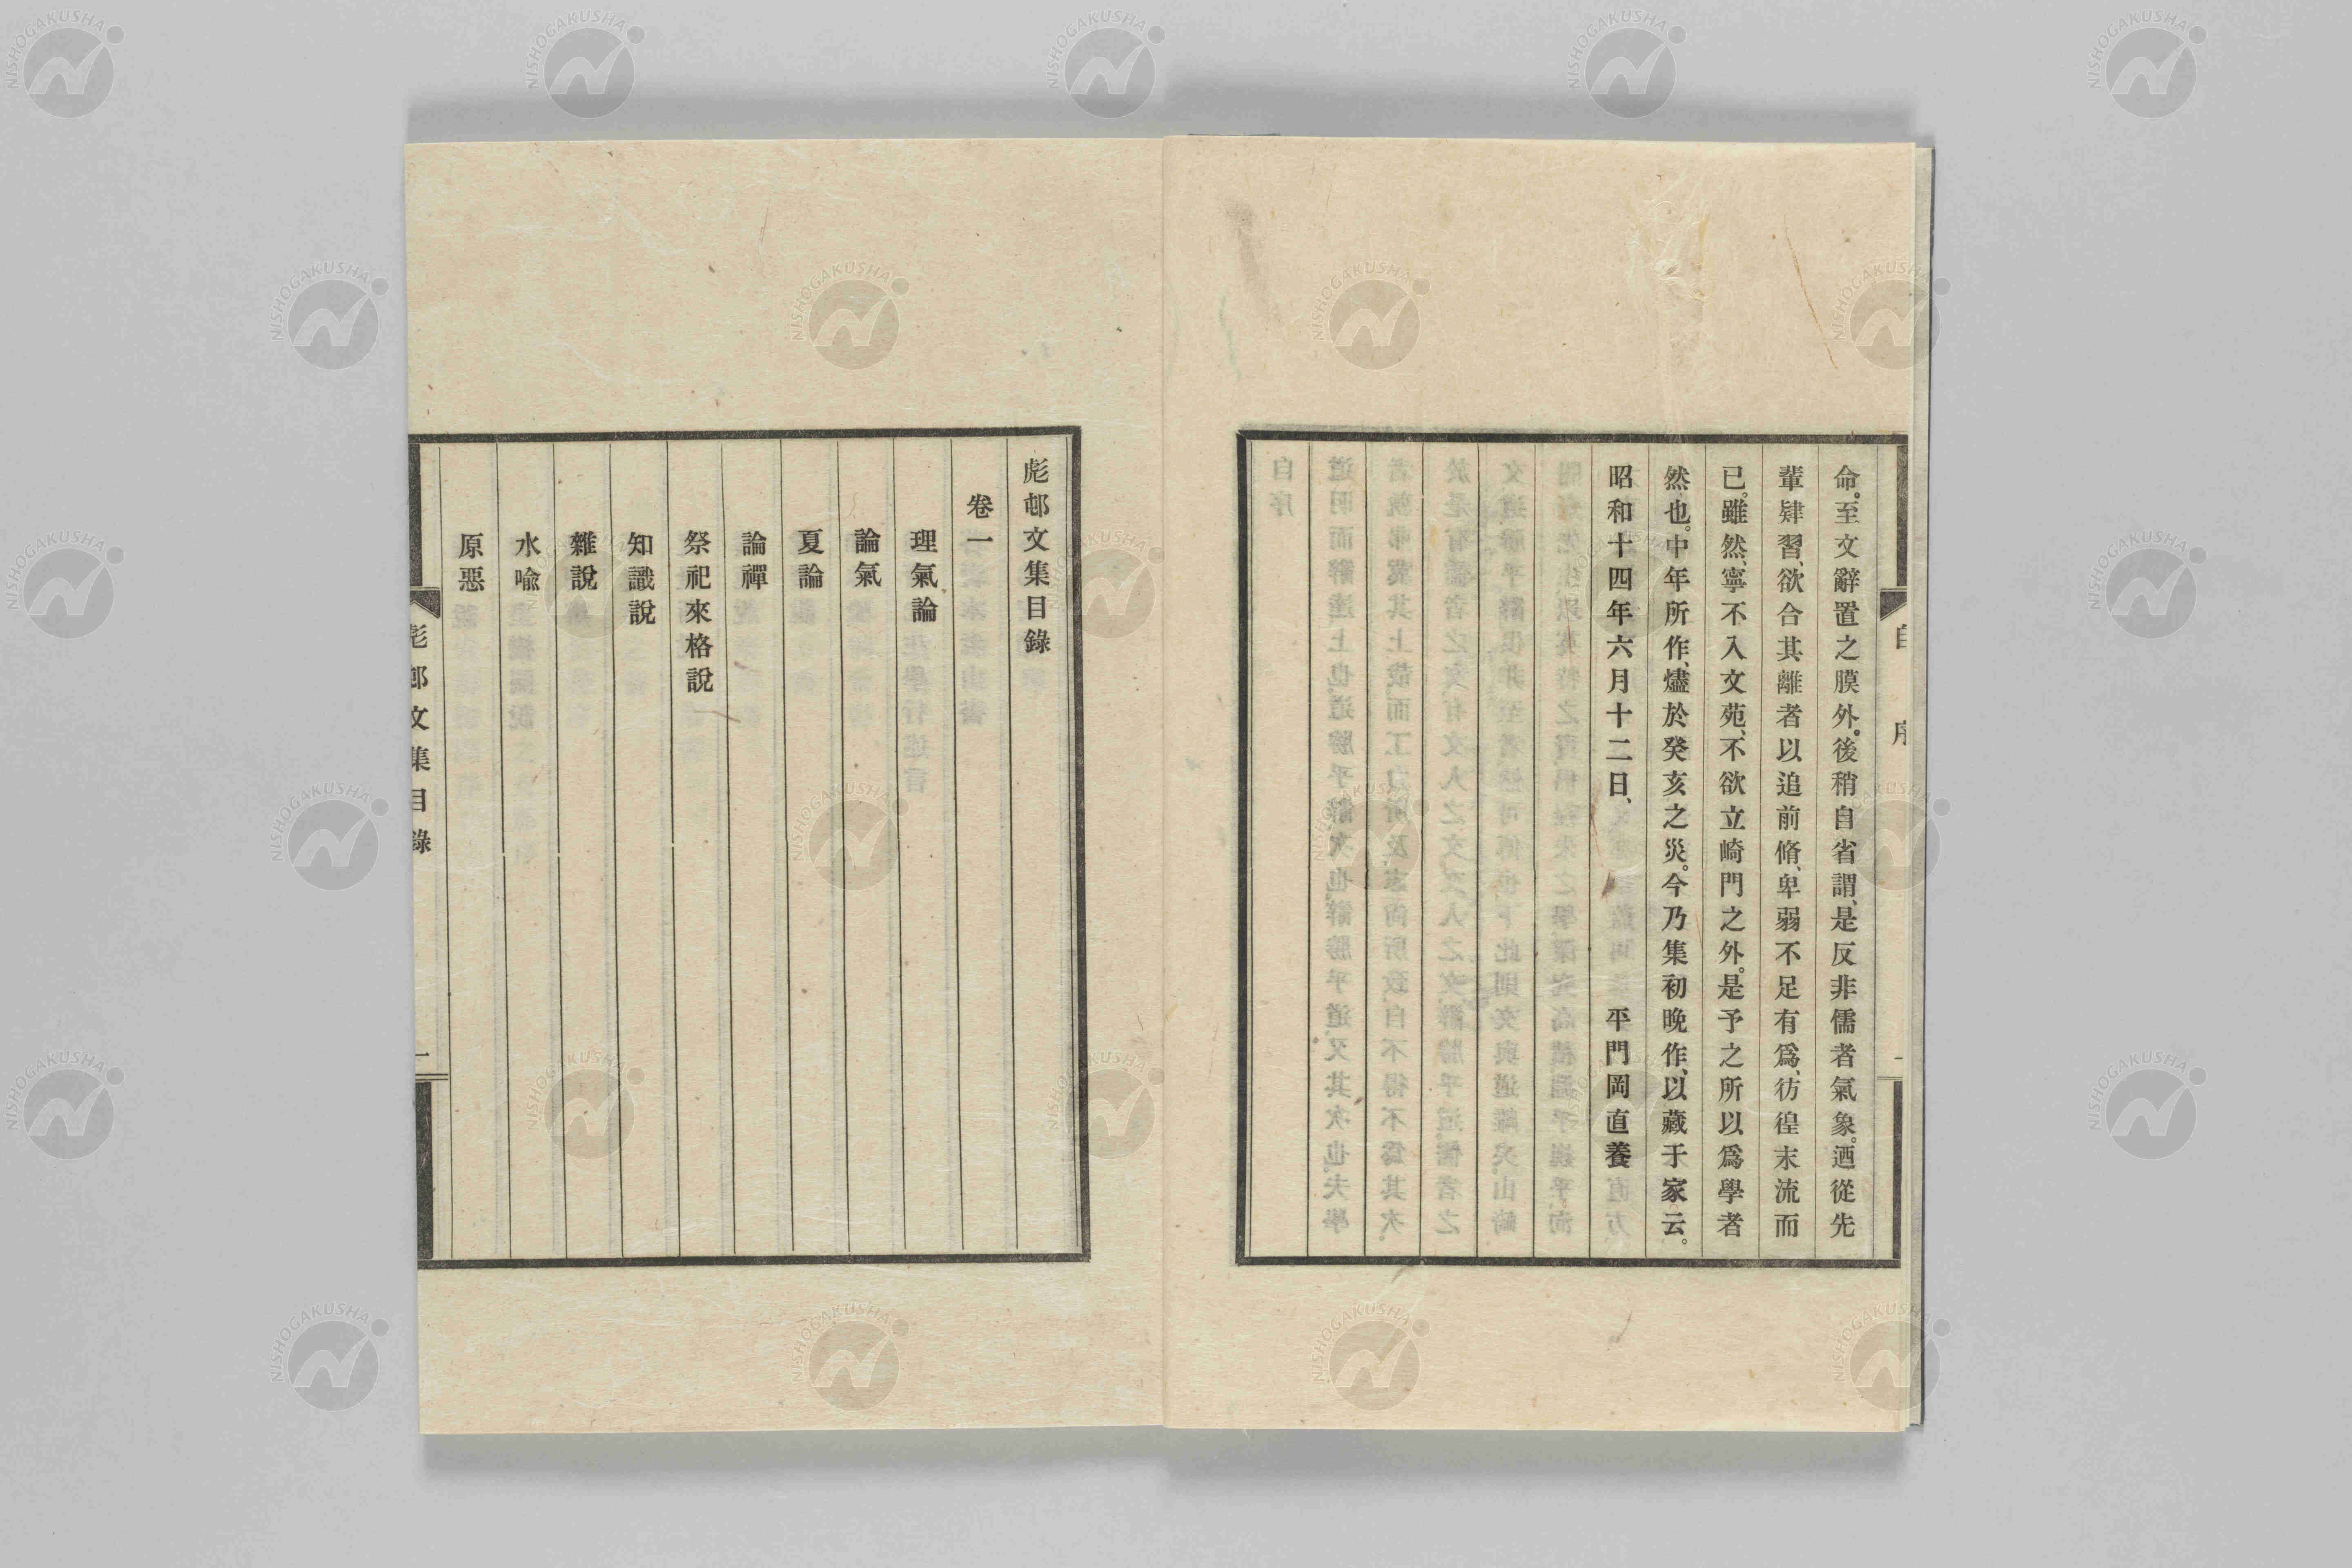 命。至文辭置之膜外。後稍自省謂、是反非儒者氣象。迺從先
輩肄習、欲合其離者以追前脩、卑弱不足有爲、彷徨末流而
已。雖然、寧不入文苑、不欲立崎門之外。是予之所以爲學者
然也。中年所作、燼於癸亥之災。今乃集初晚作、以藏于家云。
昭和十四年六月十二日、　平門岡直養
自序
一
彪邨文集目錄
卷一
理氣論
論氣
夏論
論禪
祭祀來格說
知識說
雜說
水喩
原惡
彪邨文集目錄
一
NISHOGAKUSHA